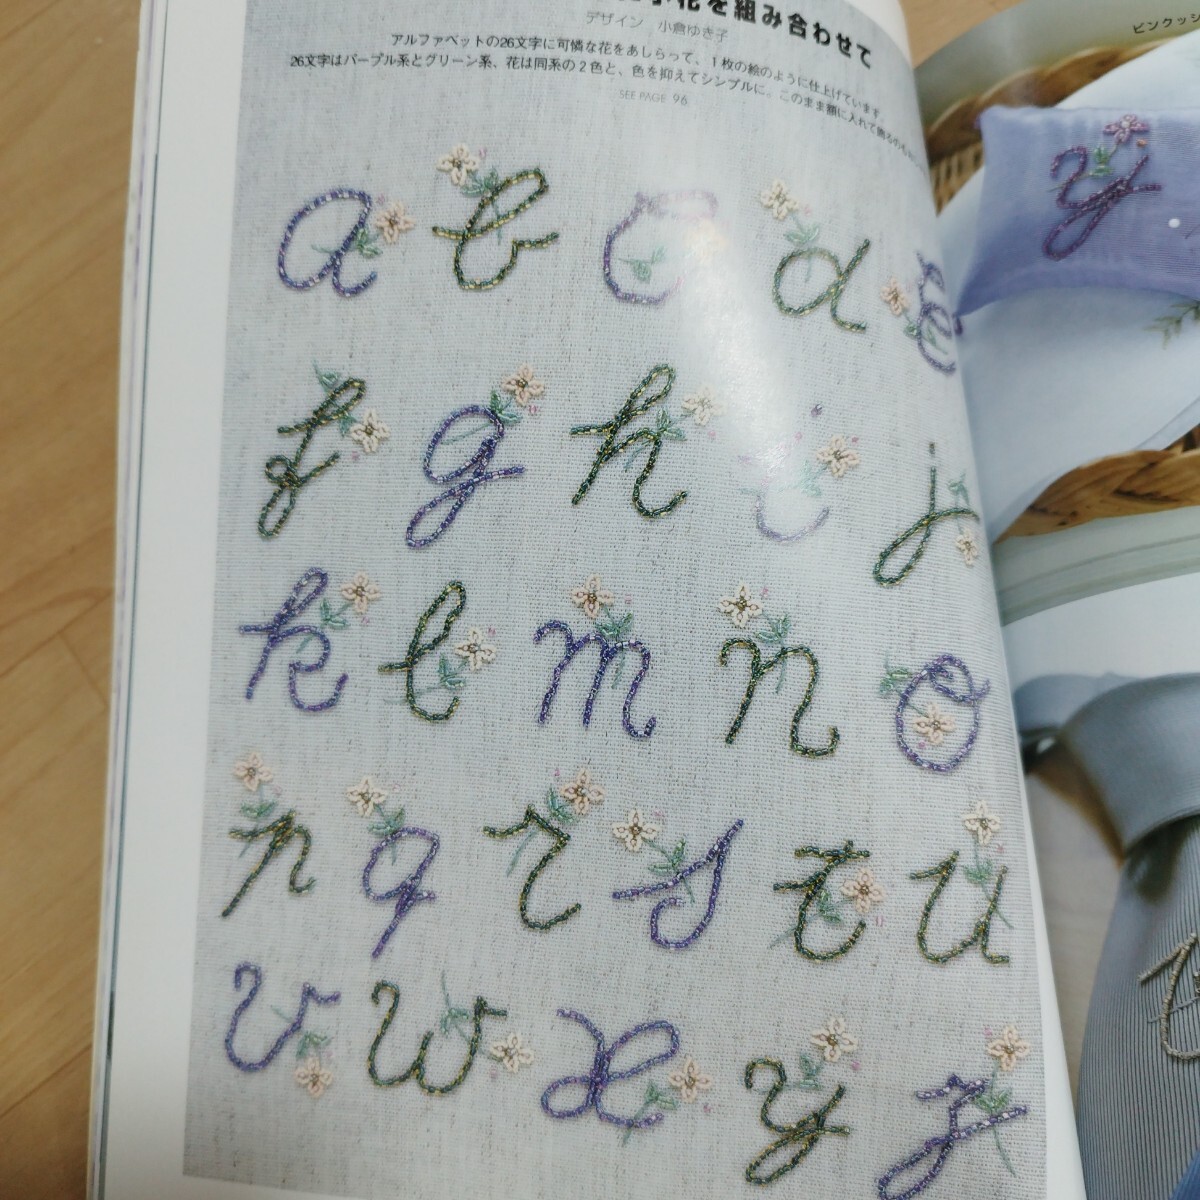 小花を組み合わせて
デザイン 小倉ゆき子
アルファベットの26文字に可憐な花をあしらって、1枚の絵のように仕上げています。
26文字はパープル系とグリーン系、花は同系の2色と、色を抑えてシンプルに。このまま額に入れて飾るのも
SEE PAGE 96
ピンクッシ
y
a b c d e
f g h i j
k l m n o
p q r s t u
v w x y z